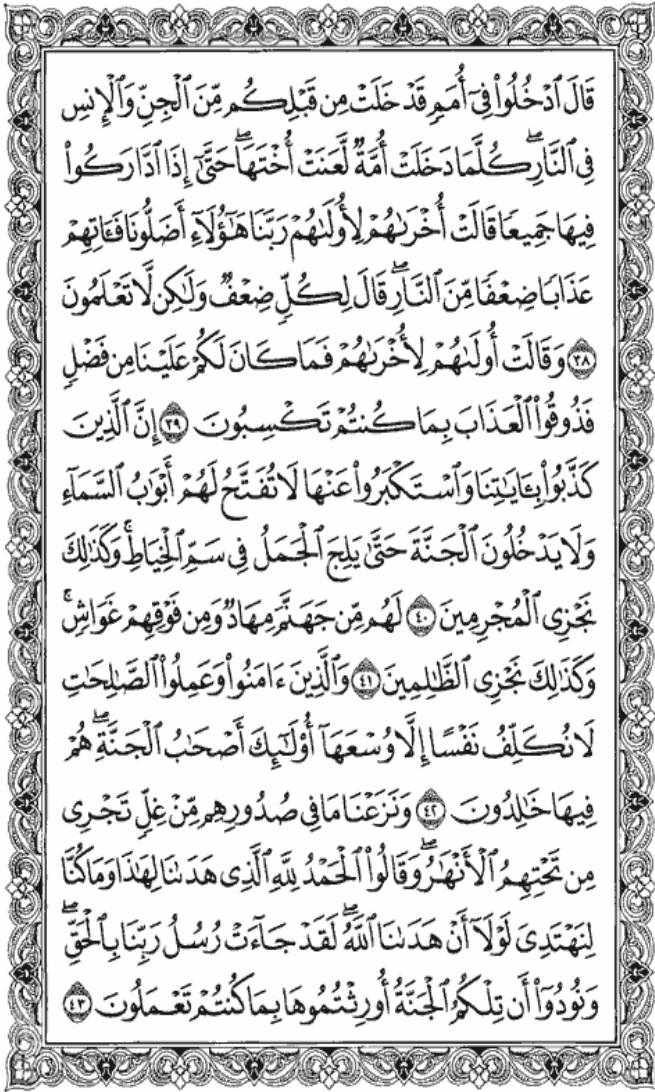 قَالَ ٱدۡخُلُواْ فِيٓ أُمَمٖ قَدۡ خَلَتۡ مِن قَبۡلِكُم مِّنَ ٱلۡجِنِّ وَٱلۡإِنسِ
فِي ٱلنَّارِۖ كُلَّمَا دَخَلَتۡ أُمَّةٞ لَّعَنَتۡ أُخۡتَهَاۖ حَتَّىٰٓ إِذَا ٱدَّارَكُواْ
فِيهَا جَمِيعٗا قَالَتۡ أُخۡرَىٰهُمۡ لِأُولَىٰهُمۡ رَبَّنَا هَٰٓؤُلَآءِ أَضَلُّونَا فَـَٔاتِهِمۡ
عَذَابٗا ضِعۡفٗا مِّنَ ٱلنَّارِۖ قَالَ لِكُلّٖ ضِعۡفٞ وَلَٰكِن لَّا تَعۡلَمُونَ
٣٨ وَقَالَتۡ أُولَىٰهُمۡ لِأُخۡرَىٰهُمۡ فَمَا كَانَ لَكُمۡ عَلَيۡنَا مِن فَضۡلٖ
فَذُوقُواْ ٱلۡعَذَابَ بِمَا كُنتُمۡ تَكۡسِبُونَ ٣٩ إِنَّ ٱلَّذِينَ
كَذَّبُواْ بِـَٔايَٰتِنَا وَٱسۡتَكۡبَرُواْ عَنۡهَا لَا تُفَتَّحُ لَهُمۡ أَبۡوَٰبُ ٱلسَّمَآءِ
وَلَا يَدۡخُلُونَ ٱلۡجَنَّةَ حَتَّىٰ يَلِجَ ٱلۡجَمَلُ فِي سَمِّ ٱلۡخِيَاطِۚ وَكَذَٰلِكَ
نَجۡزِي ٱلۡمُجۡرِمِينَ ٤٠ لَهُم مِّن جَهَنَّمَ مِهَادٞ وَمِن فَوۡقِهِمۡ غَوَاشٖۚ
وَكَذَٰلِكَ نَجۡزِي ٱلظَّٰلِمِينَ ٤١ وَٱلَّذِينَ ءَامَنُواْ وَعَمِلُواْ ٱلصَّٰلِحَٰتِ
لَا نُكَلِّفُ نَفۡسًا إِلَّا وُسۡعَهَآ أُوْلَٰٓئِكَ أَصۡحَٰبُ ٱلۡجَنَّةِۖ هُمۡ
فِيهَا خَٰلِدُونَ ٤٢ وَنَزَعۡنَا مَا فِي صُدُورِهِم مِّنۡ غِلّٖ تَجۡرِي
مِن تَحۡتِهِمُ ٱلۡأَنۡهَٰرُۖ وَقَالُواْ ٱلۡحَمۡدُ لِلَّهِ ٱلَّذِي هَدَىٰنَا لِهَٰذَا وَمَا كُنَّا
لِنَهۡتَدِيَ لَوۡلَآ أَنۡ هَدَىٰنَا ٱللَّهُۖ لَقَدۡ جَآءَتۡ رُسُلُ رَبِّنَا بِٱلۡحَقِّۖ
وَنُودُوٓاْ أَن تِلۡكُمُ ٱلۡجَنَّةُ أُورِثۡتُمُوهَا بِمَا كُنتُمۡ تَعۡمَلُونَ ٤٣